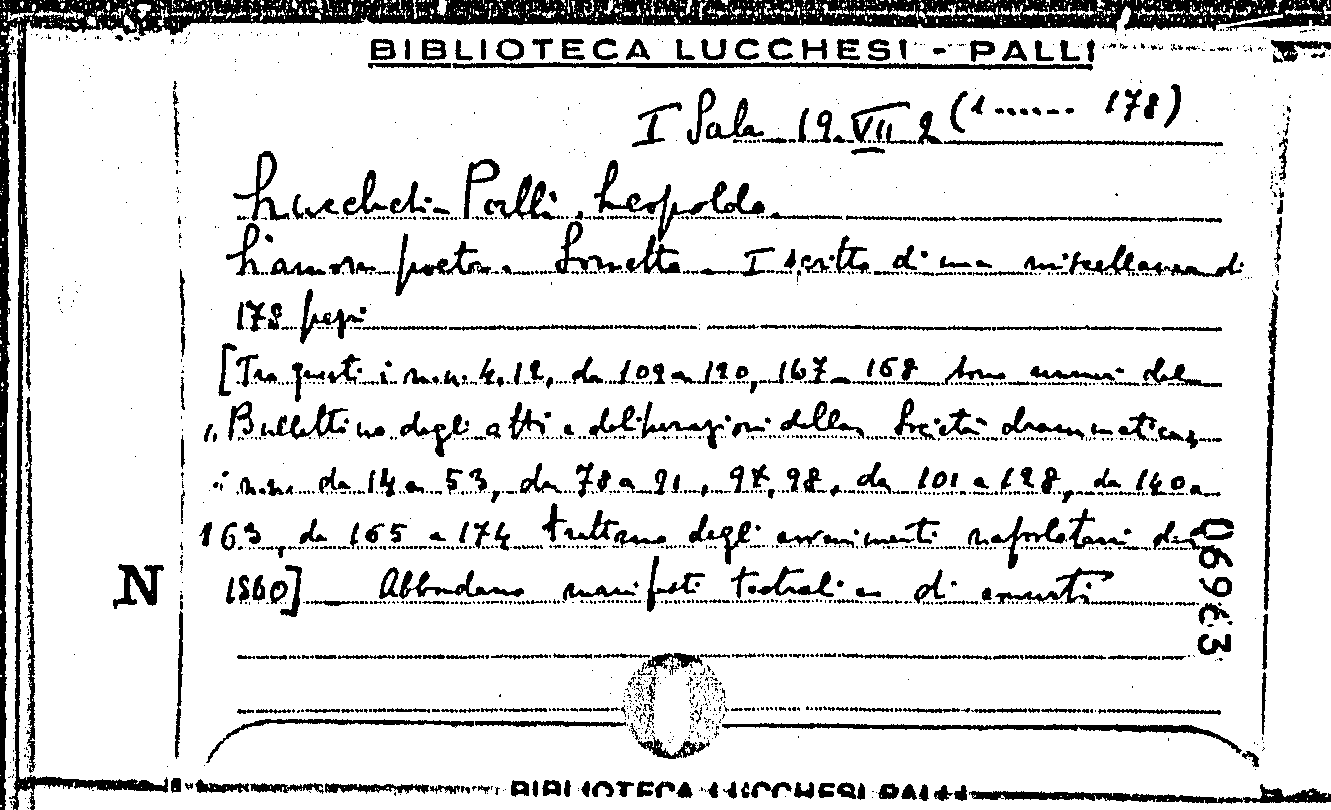 BIBLIOTECA LUCCHESI - PALLI
I Sala 19. VII 2 (1 ...... 178)
Lucchesi-Palli, Leopoldo.
L'amore poeta. Sonetto. I scritto di una miscellanea di
178 pezzi
[Tra questi i n.n. 4, 12, da 109 a 120, 167-168 sono numeri del
"Bullettino degli atti e deliberazioni della Società drammatica,
i n.n. da 14 a 53, da 78 a 91, 97, 98, da 101 a 128, da 140 a
163, da 165 a 174 trattano degli avvenimenti napoletani del
1860] Abbondano manifesti teatrali e di concerti
N
06963
BIBLIOTECA LUCCHESI PALLI